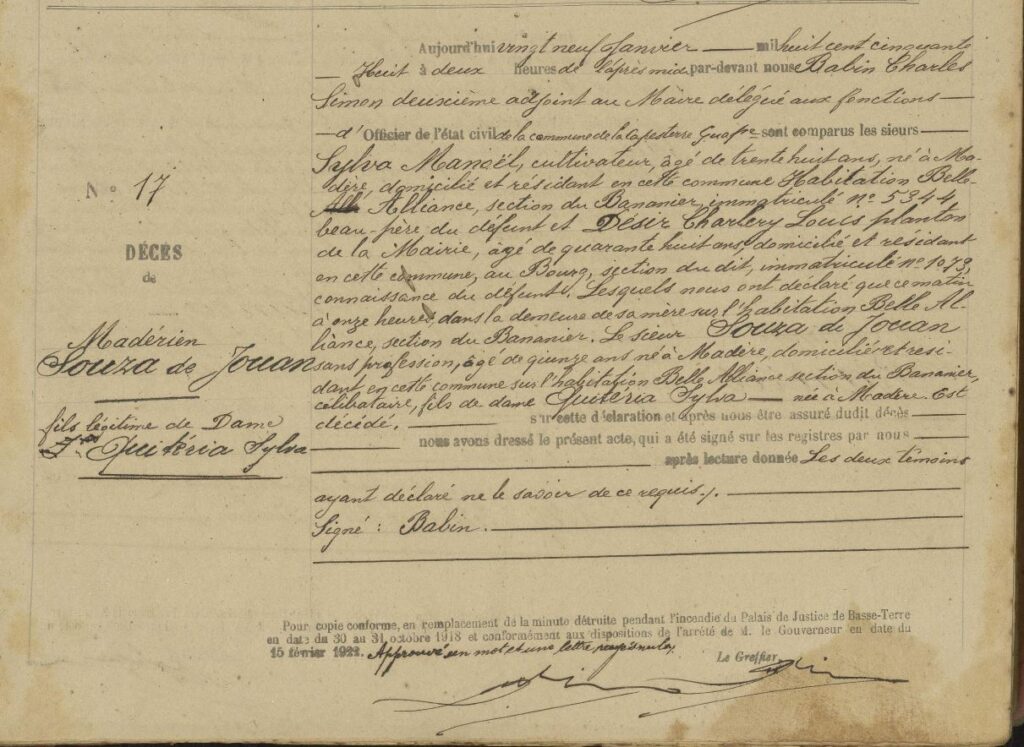 Aujourd'hui vingt neuf Janvier — mil huit cent cinquante
— Huit à deux heures de l'après midi par-devant nous Babin Charles
Simon deuxième adjoint au Maire délégué aux fonctions —
— d'Officier de l'état civil de la commune de la Capesterre Guad.pe sont comparus les sieurs —
Sylva Manoël, cultivateur, âgé de trente huit ans, né à Ma-
dère, domicilié et résidant en cette commune Habitation Belle-
Alliance, section du Bananier, immatriculé n° 5344
beau-père du défunt et Désir Charlery Louis planton
de la Mairie, âgé de quarante huit ans, domicilié et résidant
en cette commune, au Bourg, section du dit, immatriculé n° 1073,
connaissance du défunt. Lesquels nous ont déclaré que ce matin
à onze heures, dans la demeure de sa mère sur l'habitation Belle Al-
liance, section du Bananier. Le sieur Souza de Jouan
sans profession, âgé de quinze ans né à Madère, domicilié et rési
dant en cette commune sur l'habitation Belle Alliance section du Bananier,
célibataire, fils de dame Quitéria Sylva — née à Madère. Est
décédé. — sur cette déclaration et après nous être assuré dudit décès —
nous avons dressé le présent acte, qui a été signé sur les registres par nous
après lecture donnée Les deux témoins
ayant déclaré ne le savoir de ce requis. —
Signé : Babin. —
N° 17
DÉCÈS
de
Madérien
Souza de Jouan
fils légitime de Dame
Quitéria Sylva
Pour copie conforme, en remplacement de la minute détruite pendant l'incendie du Palais de Justice de Basse-Terre
en date du 30 au 31 octobre 1918 et conformément aux dispositions de l'arrêté de M. le Gouverneur en date du
15 février 1922. Approuvé un mot et une lettre rayés nuls
Le Greffier,